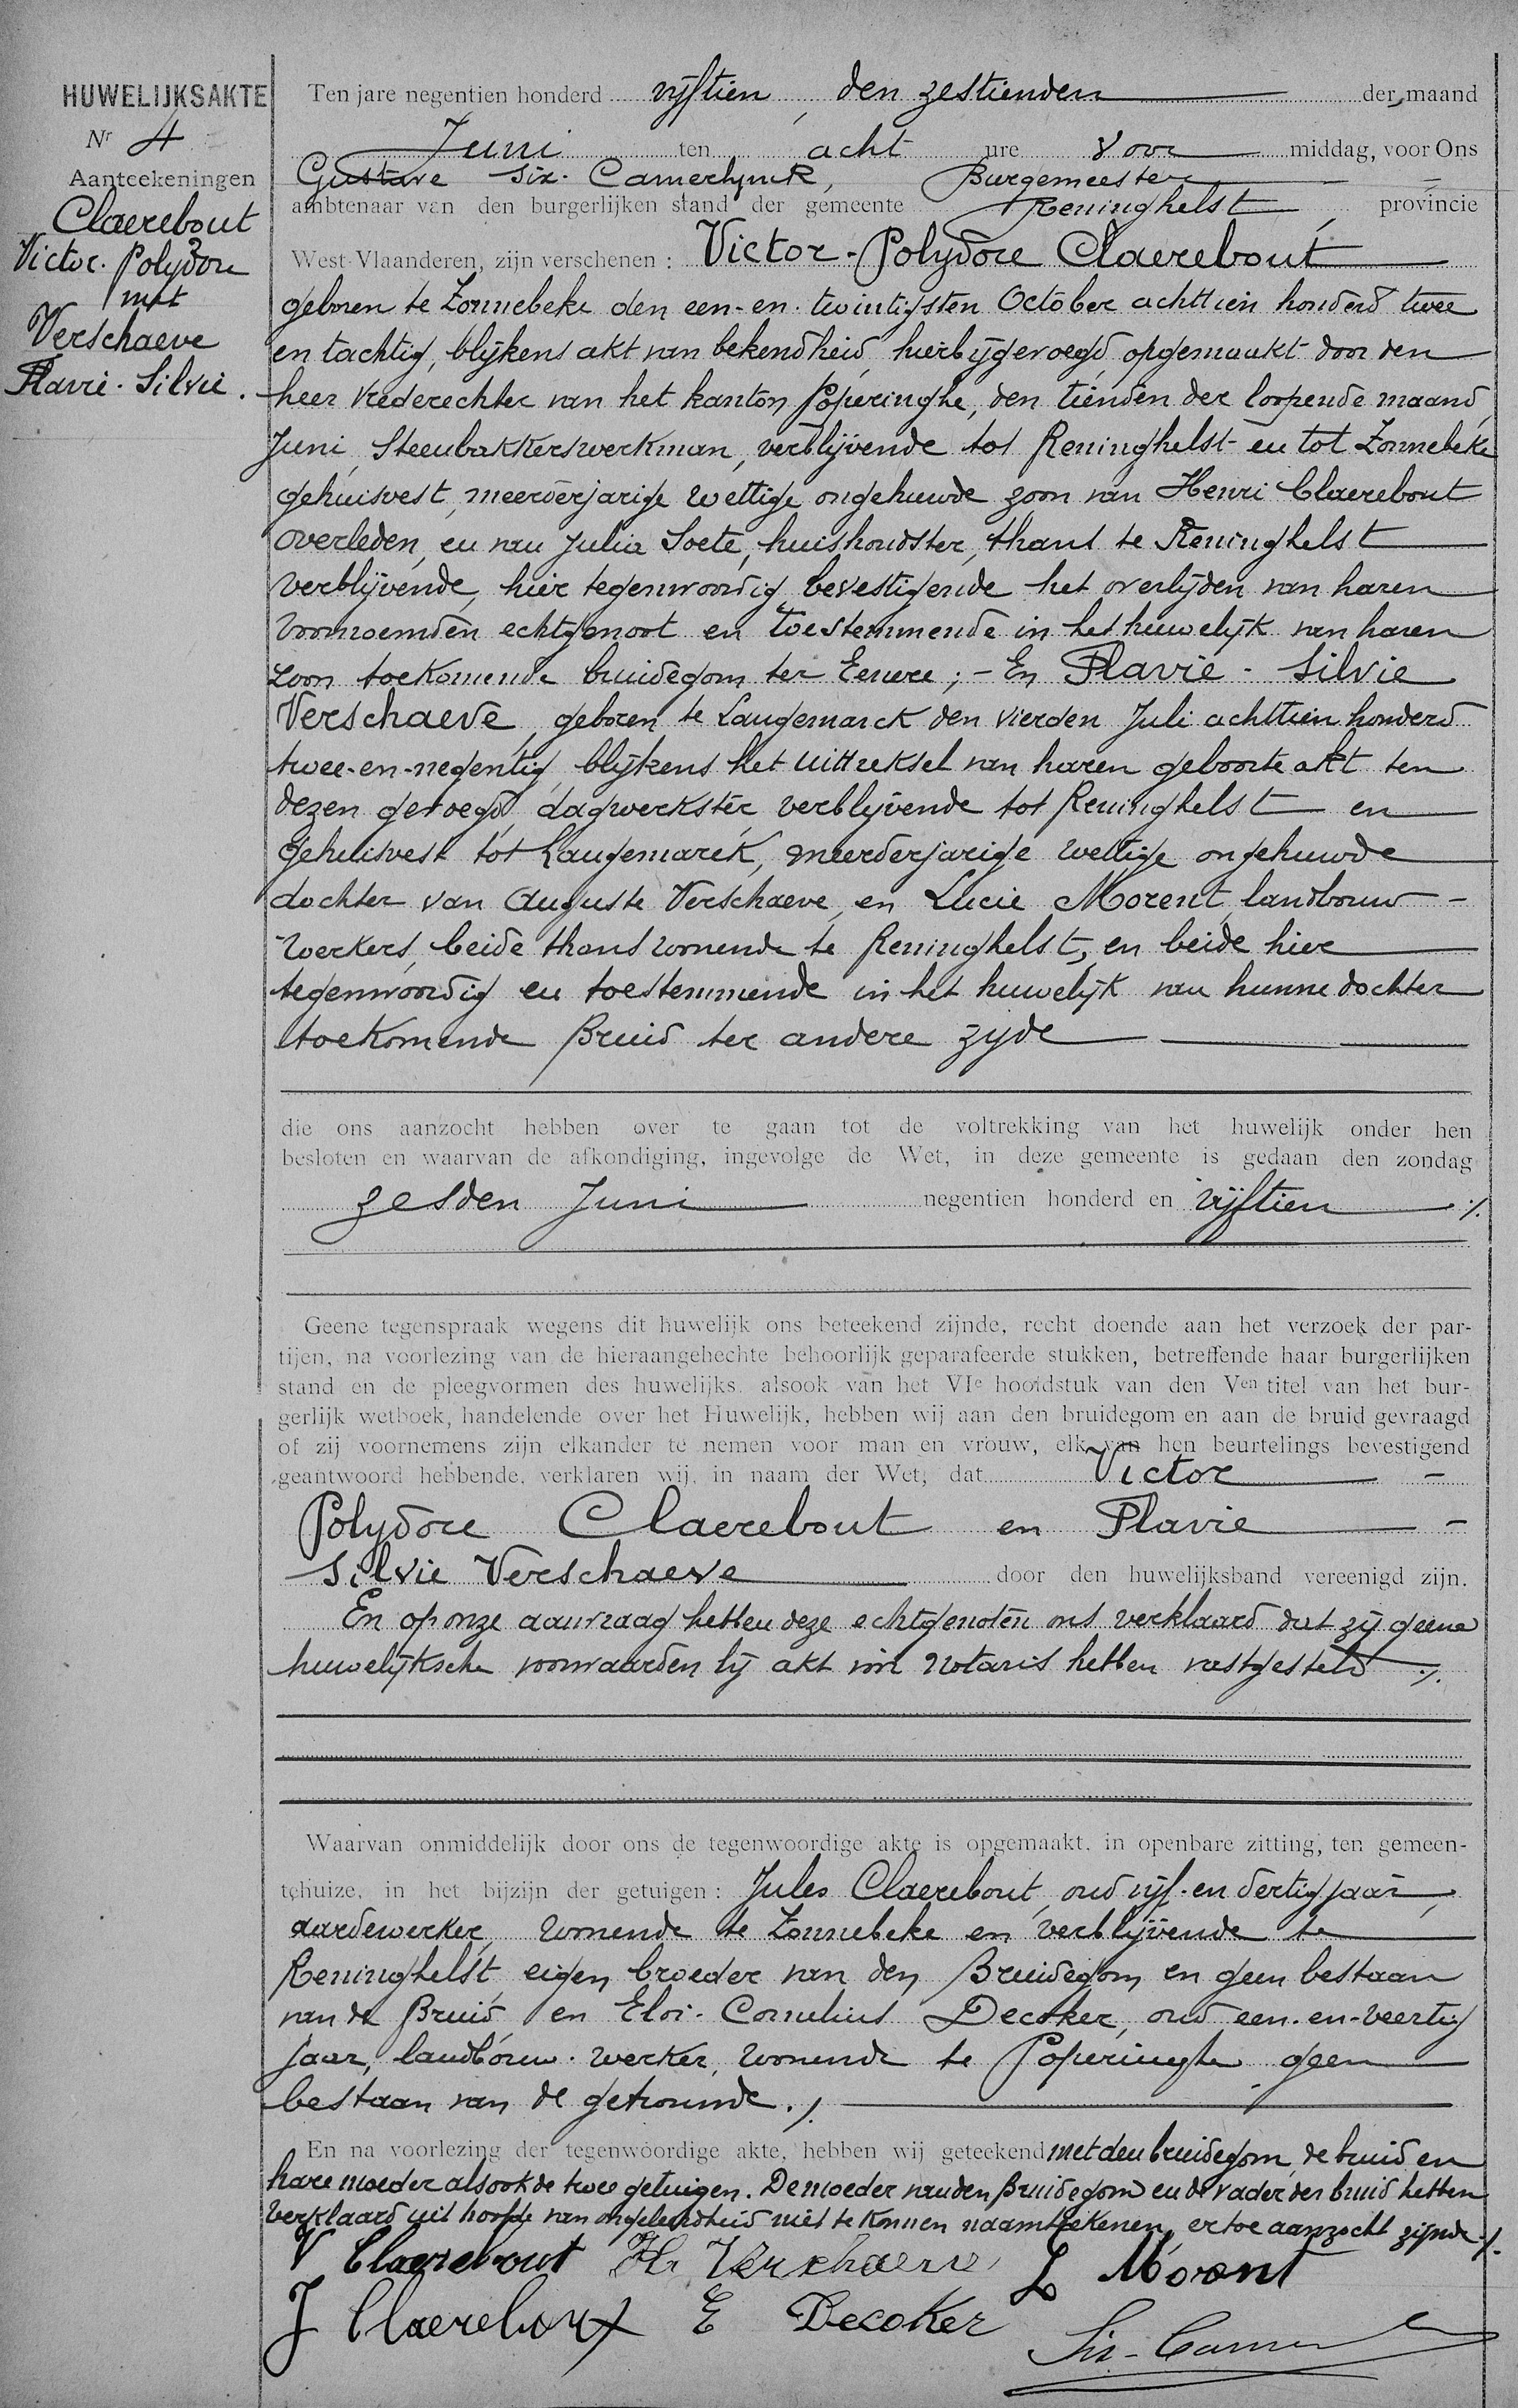 HUWELIJKSAKTE
Nr 4
Aanteekeningen
Claerebout
Victor-Polydore
met
Verschaeve
Flavie-Silvie.
Ten jare negentien honderd vijftien, den zestienden der maand
Juni ten acht ure voor middag, voor Ons
Gustave Six-Camerlynck, Burgemeester
ambtenaar van den burgerlijken stand der gemeente Reninghelst, provincie
West-Vlaanderen, zijn verschenen : Victor-Polydore Claerebout
geboren te Zonnebeke den een-en-twintigsten October achttien honderd twee
en tachtig, blijkens akt van bekendheid, hierbijgevoegd, opgemaakt door den
heer Vrederechter van het kanton Poperinghe, den tienden der loopende maand
Juni, Steenbakkerswerkman, verblijvende tot Reninghelst en tot Zonnebeke
gehuisvest, meerderjarige wettige ongehuwde zoon van Henri Claerebout
overleden, en van Julia Soete, huishoudster, thans te Reninghelst
verblijvende, hier tegenwoordig bevestigende het overlijden van haren
voornoemden echtgenoot en toestemmende in het huwelijk van haren
zoon toekomende bruidegom ter Eenere ; - En Flavie-Silvie
Verschaeve, geboren te Langemarck den vierden Juli achttien honderd
twee-en-negentig, blijkens het uittreksel van haren geboorte akt ten
dezen gevoegd, dagwerkster, verblijvende tot Reninghelst en
gehuisvest tot Langemarck, meerderjarige wettige ongehuwde
dochter van Auguste Verschaeve, en Lucie Morent, landbouw-
werkers, beide thans wonende te Reninghelst, en beide hier
tegenwoordig en toestemmende in het huwelijk van hunne dochter
toekomende Bruid ter andere zijde
die ons aanzocht hebben over te gaan tot de voltrekking van het huwelijk onder hen
besloten en waarvan de afkondiging, ingevolge de Wet, in deze gemeente is gedaan den zondag
zesden Juni negentien honderd en vijftien ./.
Geene tegenspraak wegens dit huwelijk ons beteekend zijnde, recht doende aan het verzoek der par-
tijen, na voorlezing van de hieraangehechte behoorlijk geparafeerde stukken, betreffende haar burgerlijken
stand en de pleegvormen des huwelijks, alsook van het VIe hoofdstuk van den Ven titel van het bur-
gerlijk wetboek, handelende over het Huwelijk, hebben wij aan den bruidegom en aan de bruid gevraagd
of zij voornemens zijn elkander te nemen voor man en vrouw, elk van hen beurtelings bevestigend
geantwoord hebbende, verklaren wij, in naam der Wet, dat Victor
Polydore Claerebout en Flavie
Silvie Verschaeve door den huwelijksband vereenigd zijn.
En op onze aanvraag hebben deze echtgenoten ons verklaard dat zij geene
huwelijksche voorwaarden bij akt voor Notaris hebben vastgesteld ./.
Waarvan onmiddelijk door ons de tegenwoordige akte is opgemaakt, in openbare zitting, ten gemeen-
tehuize, in het bijzijn der getuigen : Jules Claerebout, oud vijf-en dertig jaar,
aardewerker, wonende te Zonnebeke en verblijvende te
Reninghelst, eigen broeder van den Bruidegom en geen bestaan
van de Bruid, en Eloi-Cornelius Decoker, oud een-en-veertig
jaar, landbouw-werker, wonende te Poperinghe geen
bestaan van de getrouwde. ./.
En na voorlezing der tegenwoordige akte, hebben wij geteekend met den bruidegom, de bruid en
hare moeder alsook de twee getuigen. De moeder van den Bruidegom en de vader der bruid hebben
verklaard uit hoofde van ongeleerdheid niet te konnen naamteekenen, ertoe aanzocht zijnde ./.
V Claerebout Fl. Verschaeve L Morent
J Claerebout E Decoker
Six-Camer